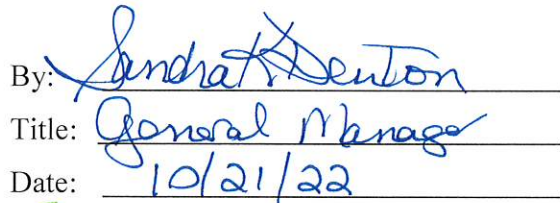 By: Sandra K Denton
Title: General Manager
Date: 10/21/22